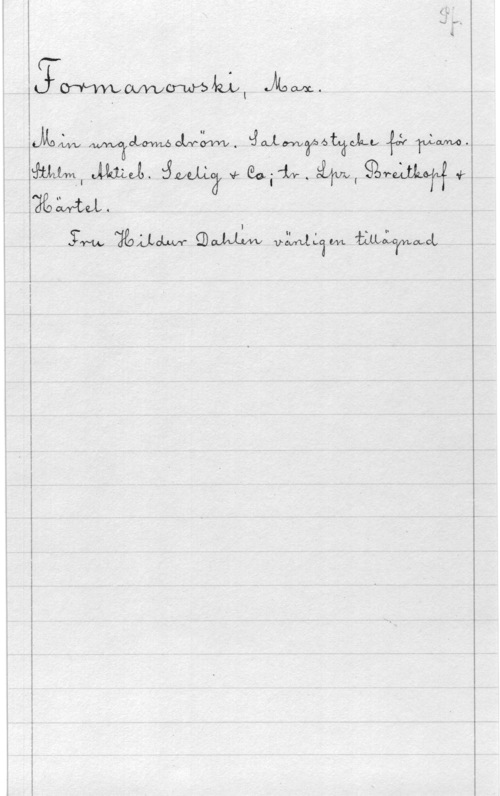 Pf.
Formanowski, Max.
Min ungdomsdröm. Salongsstycke för piano.
Sthlm, Aktieb. Seelig & Co; tr. Lpz, Breitkopf &
Härtel.
Fru Hildur Dahlén vänligen tillägnad